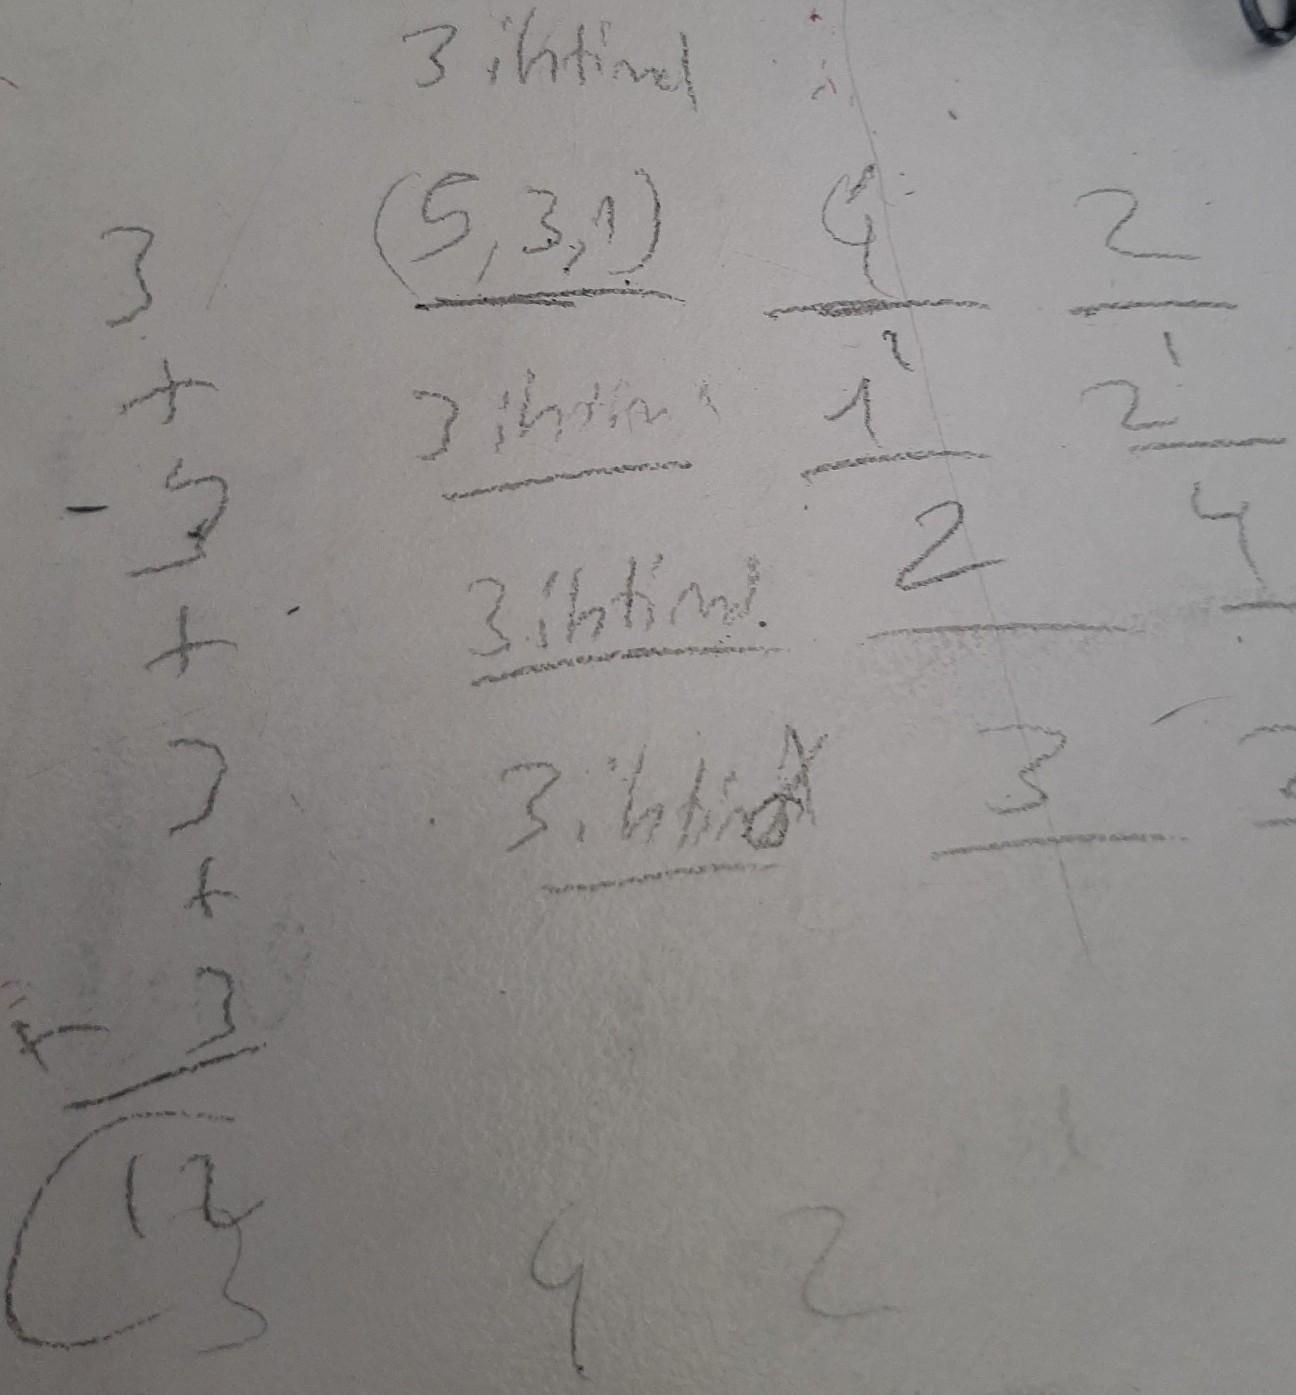 3 ihtimal
3 (5,3,1) 4 2
+
3 ihtim 1 2
- 3
3 ihtimal 2 4
+
3 3 ihtimal 3
+
3
+
12
3 4 2